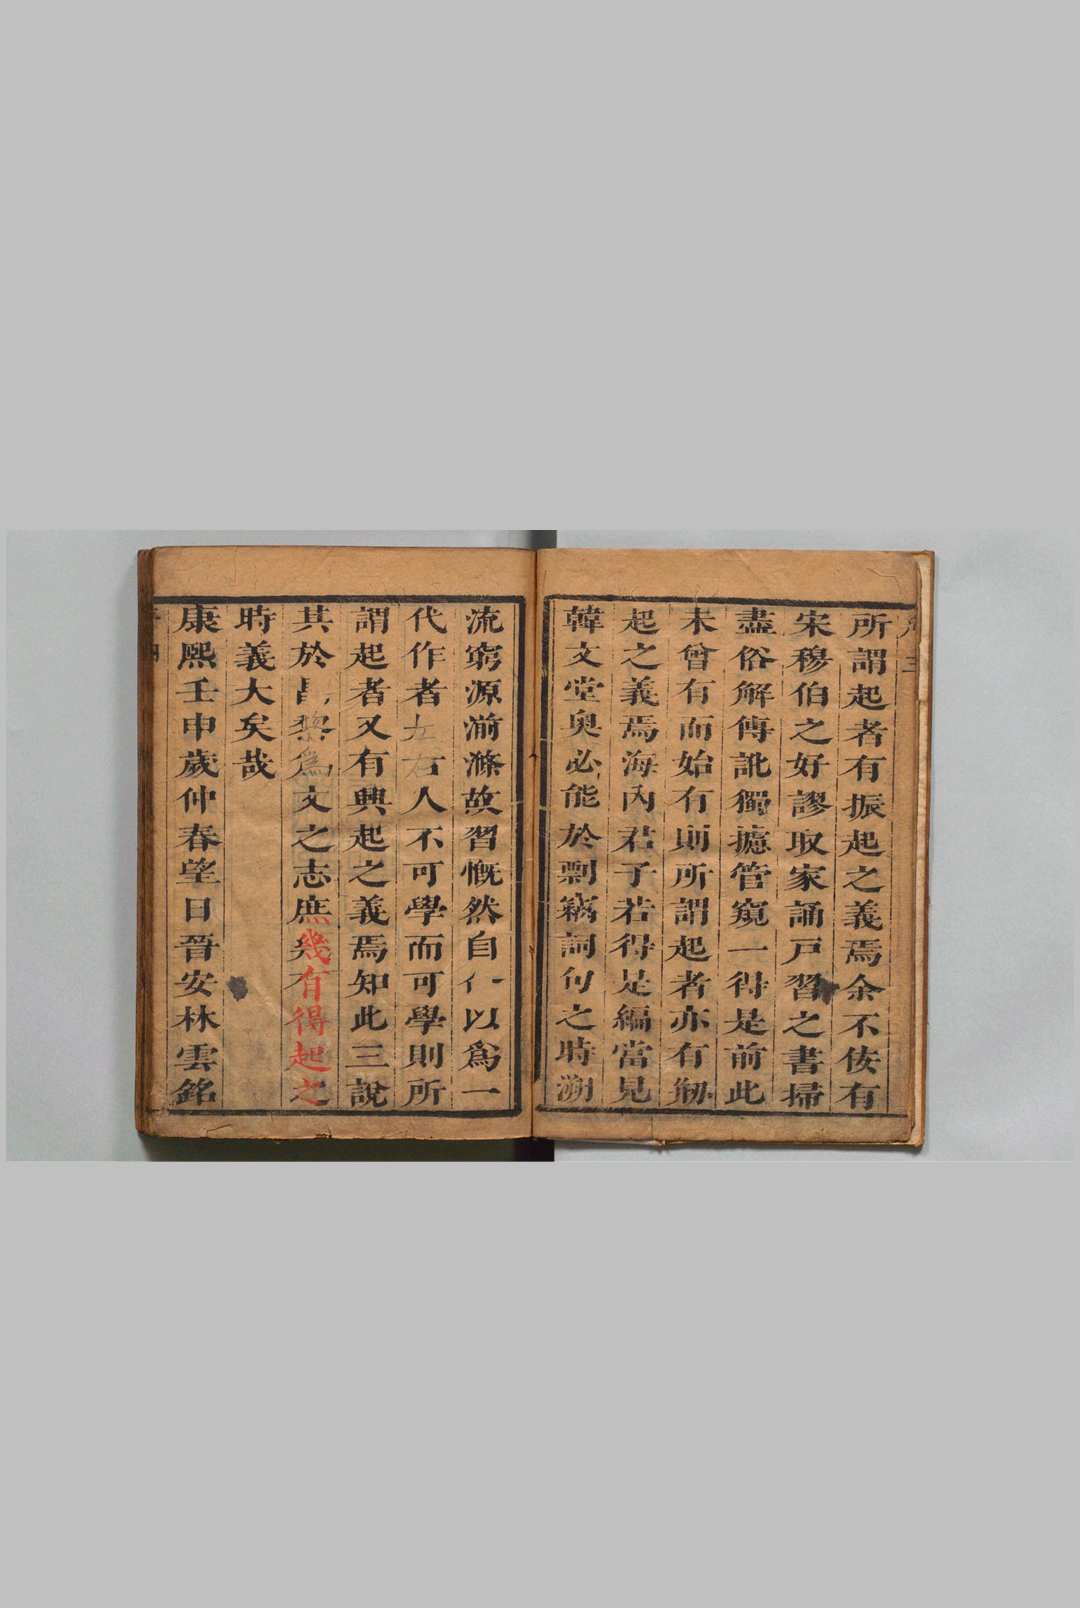 所謂起者有振起之義焉余不佞有
宋穆伯之好謬取家誦戸習之書掃
盡俗解傳訛獨攄管窺一得是前此
未曾有而始有則所謂起者亦有剏
起之義焉海內君子若得是編當見
韓文堂奧必能於剽竊詞句之時溯
流窮源湔滌故習慨然自 以爲一
代作者左右人不可學而可學則所
謂起者又有興起之義焉知此三說
其於昌黎爲文之志庶幾有得起之
時義大矣哉
康熙壬申歲仲春望日晉安林雲銘